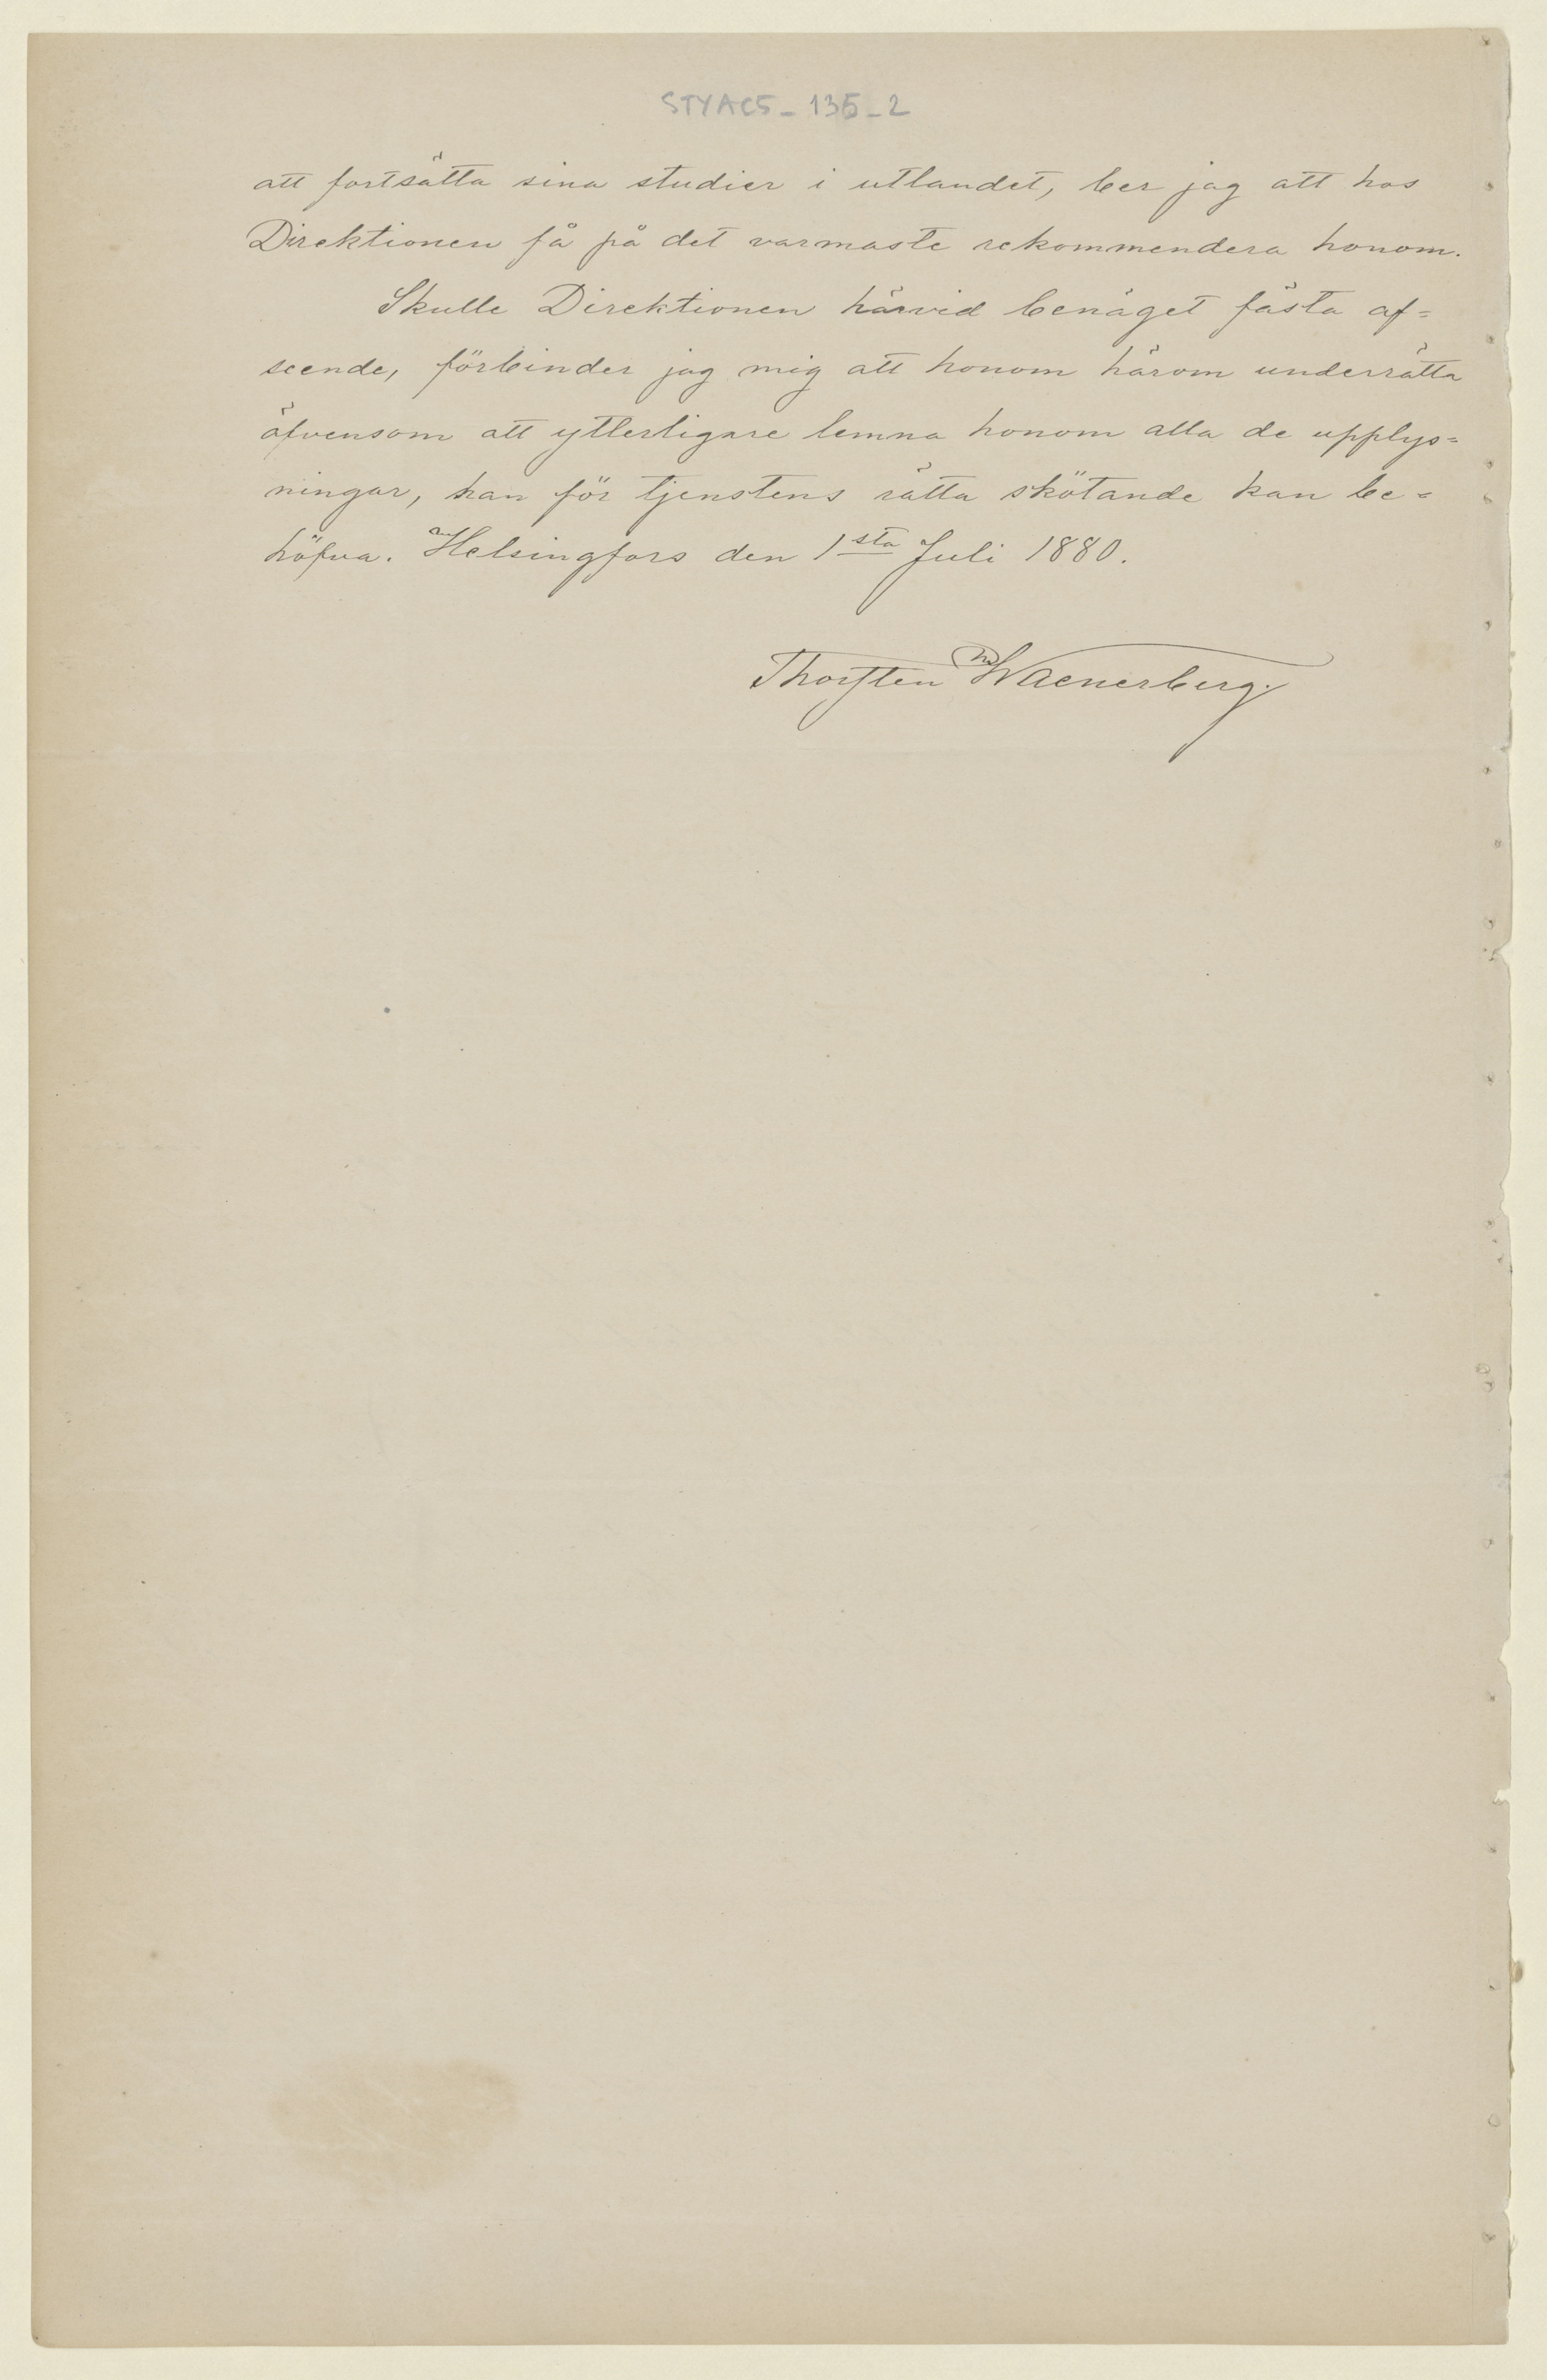 STYAC5_135_2
att fortsätta sina studier i utlandet, ber jag att hos
Direktionen få på det varmaste rekommendera honom.
Skulle Direktionen härvid benäget fästa af=
seende, förbinder jag mig att honom härom underrätta
äfvensom att ytterligare lemna honom alla de upplys=
ningar, han för tjenstens rätta skötande kan be=
höfva. Helsingfors den 1sta Juli 1880.
Thorsten Waenerberg.